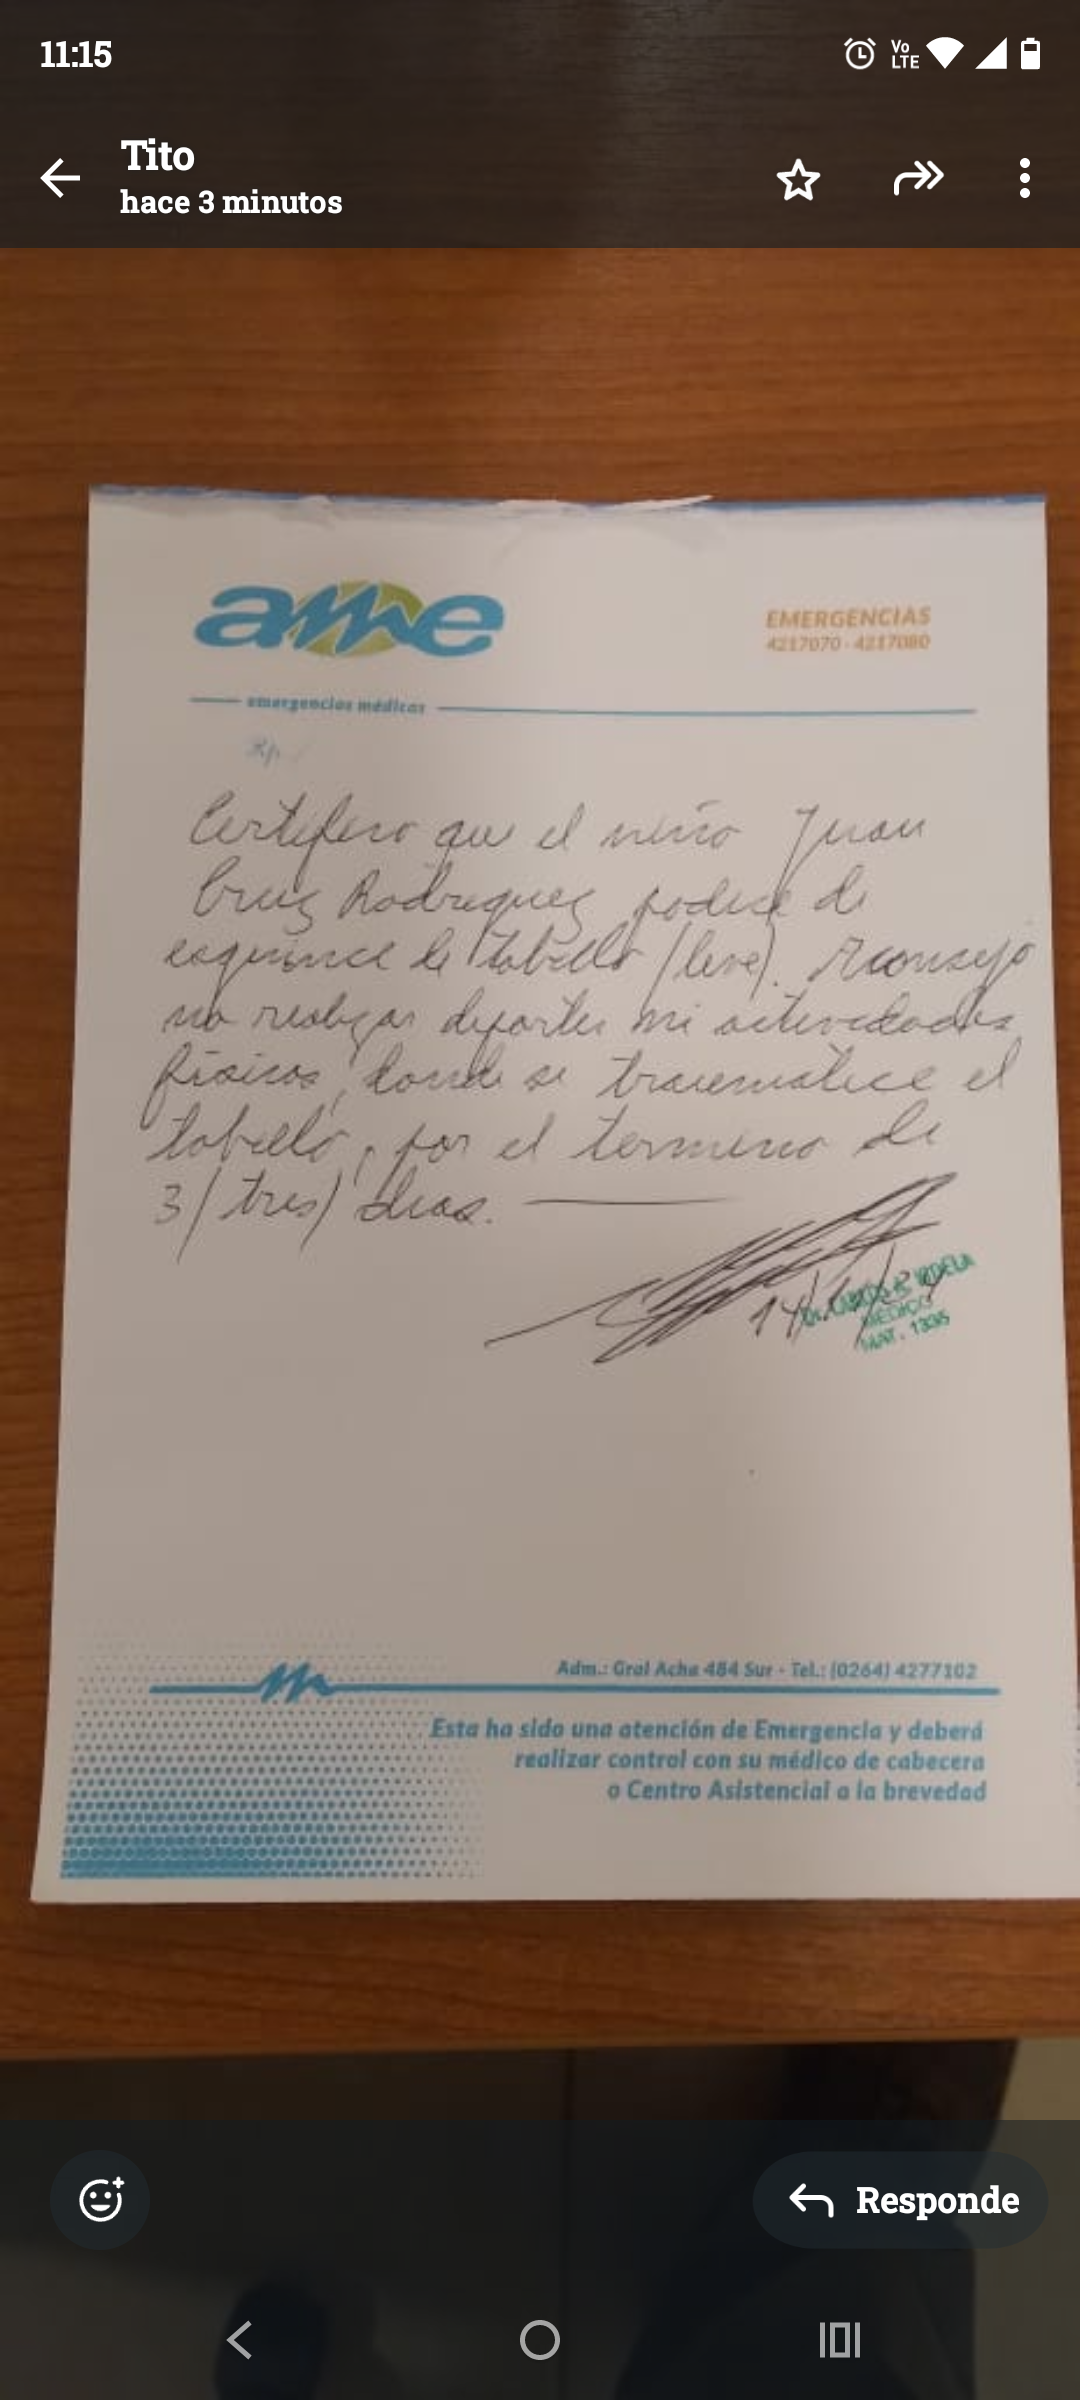 11:15
Vo
LTE
Tito
hace 3 minutos
ame
EMERGENCIAS
4217070 - 4217080
emergencias médicas
Rp.
Certifico que el niño Juan
Cruz Rodriguez padece de
esguince de tobillo (leve). Aconsejo
no realizar deportes ni actividades
fisicas, donde se traumatice el
tobillo, por el termino de
3 (tres) dias.
14/
MEDICO
MAT. 1335
Adm.: Gral Acha 484 Sur - Tel.: (0264) 4277102
Esta ha sido una atención de Emergencia y deberá
realizar control con su médico de cabecera
o Centro Asistencial a la brevedad
Responde